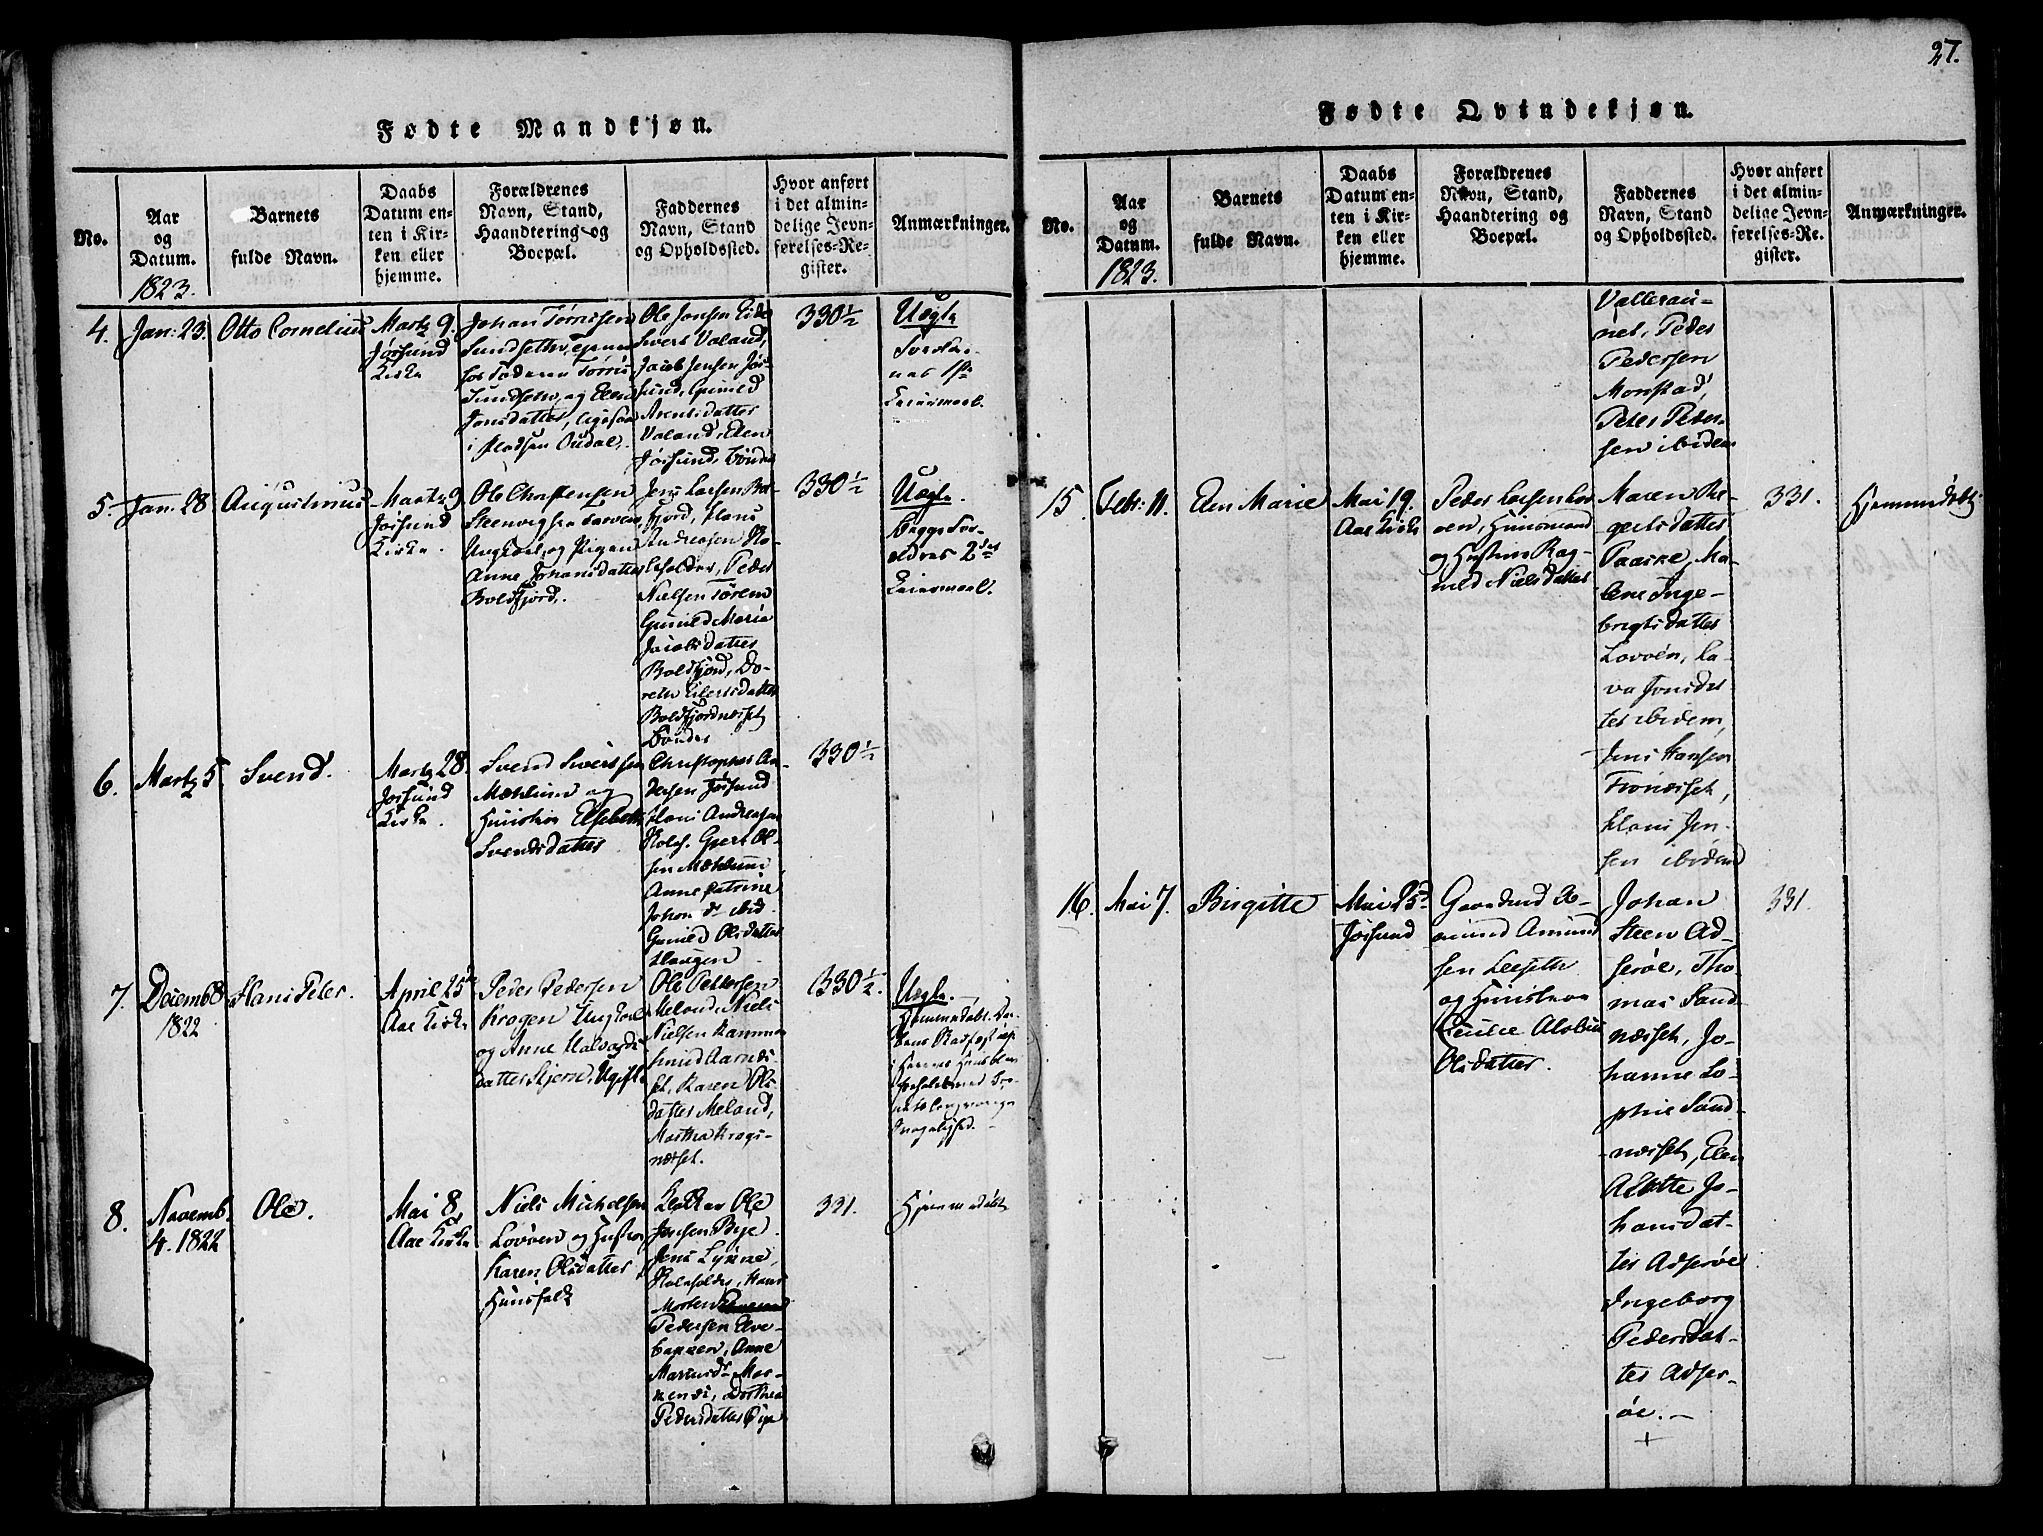 27.
Fødte Mandkjøn.
No.
Aar
og
Datum.
1823.
Barnets
fulde Navn.
Daabs
Datum en-
ten i Kir-
ken eller
hjemme.
Forældrenes
Navn, Stand,
Haandtering og
Boepæl.
Faddernes
Navn, Stand
og Opholdssted.
Hvor anført
i det almin-
delige Jevn-
førelses-Re-
gister.
Anmærkninger.
4.
Jan: 23.
Otto Cornelius
Martz 9.
Jørsund
Kirke
Johan Tørrissen
Sundseth
og Elen
Jonsdatter
i Pladsen Oudal.
Ole Jonsen
Sivert Valand,
Jacob Jensen Jør-
sund, Gunild
Arentsdatter
Valand, Elen
Jørsund, Bønder
330½
Uægte
5.
Jan: 28
Augustinus
Martz 9
Jørsund
Kirke.
Ole Christensen
Steenvig fra
Ungkarl og Pigen
Anne Johansdatter
Boldfjord.
Jens Larsen Bol-
fjord, Hans
Andreasen
Peder
Nielsen Tørem
Gunild Maria
Jacobsdatter
Boldfjord, Do-
reth Eilertsdatter
Boldfjordnæsset
Bønder
330½
Uægte.
Begge For-
ældres 2det
Leiermaal.
6.
Martz 5
Svend.
Martz 28.
Jørsund
Kirke.
Svend Sivertsen
Mæhlum og
Hustrue Elsebeth
Svendsdatter
Christopher An-
dersen Jørsund
Hans Andreasen
Gjert Ol-
sen Mæhlum,
Anne Catrine
Johan dr ibid
Gunild Olsdatter
Haugen.
330½
7.
Decemb 8
1822
Hans Peter.
April 25de
Aae Kirke
Peder Pedersen
Kragen Ungkarl
og Anne Halvords-
datter Stjern, Ugift
Ole Pettersen
Meland, Niels
Nielsen
Aarnes-
set, Karen Ols-
datter Meland,
Martha Krogs-
næsset.
330½.
Uægte.
Hjemmedøbt.
8.
Novemb.
4. 1822
Ole.
Mai 8,
Aae Kirke
Niels Micholsen
Lovøen og Hustroe
Karen Olsdatter
Huusfolk
Ole
Jensen Bye
Jens Lynne,
Hans
Morten
Pedersen
Anne
Dorthea
Pedersdatter Bye
331.
Hjemmedøbt
Fødte Qvindekjøn.
No.
Aar
og
Datum.
1823.
Barnets
fulde Navn.
Daabs
Datum en-
ten i Kir-
ken eller
hjemme.
Forældrenes
Navn, Stand,
Haandtering og
Boepæl.
Faddernes
Navn, Stand
og Opholdssted.
Hvor anført
i det almin-
delige Jevn-
førelses-Re-
gister.
Anmærkninger.
Valleraun-
net, Peder
Pedersen
Monstad,
Peter Peder-
sen ibidem
15.
Febr: 11.
Elen Marie
Mai 19.
Aae Kirke
Peder Larsen Lov-
øen, Huusmand
og Hustrue Rag-
nild Nielsdatter
Maren Be-
gertsdatter
Paaske, Ma-
lene Inge-
brigtsdatter
Lovøen, La-
va Jonsdat-
ter ibidem,
Jens Hansen
Trønæsset,
Hans Jen-
sen ibidem
331.
Hjemmedøbt
16.
Mai 7.
Birgitte
Mai 25de
Jørsund
Gaardmd A-
mund Amund
sen Leeseth
og Huustroe
Cecilie Alethe
Olsdatter.
Johan
Steen Ad-
serøe, Tho-
mas Sand-
næsset, Jo-
hanne So-
phie Sand-
næsset, Elen
Alette Jo-
hansdat-
ter Adserøe
Ingeborg
Pedersdat-
ter Adser-
øe.
331.